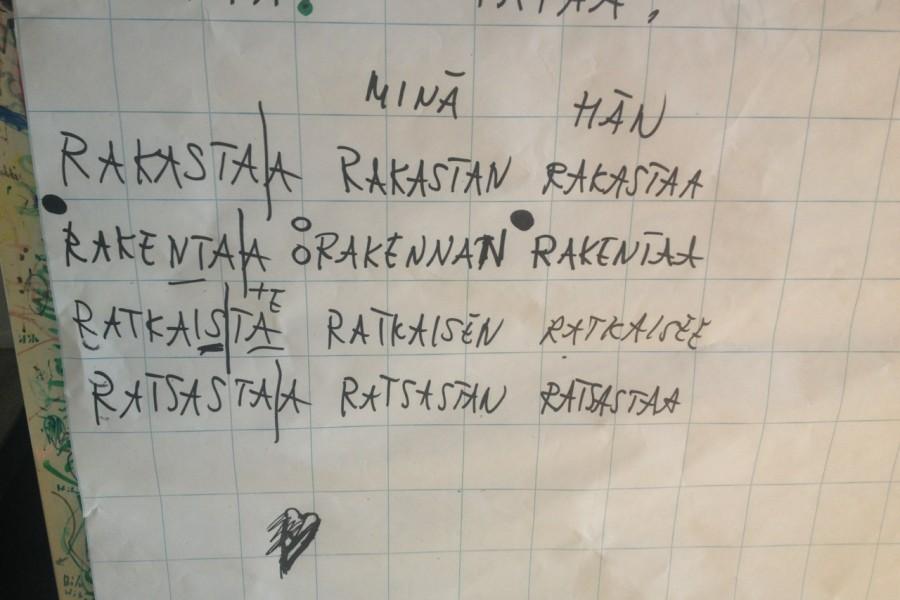 MINÄ HÄN
RAKASTA|A RAKASTAN RAKASTAA
RAKENTA|A RAKENNAN RAKENTAA
+E
RATKAIS|TA RATKAISEN RATKAISEE
RATSASTA|A RATSASTAN RATSASTAA